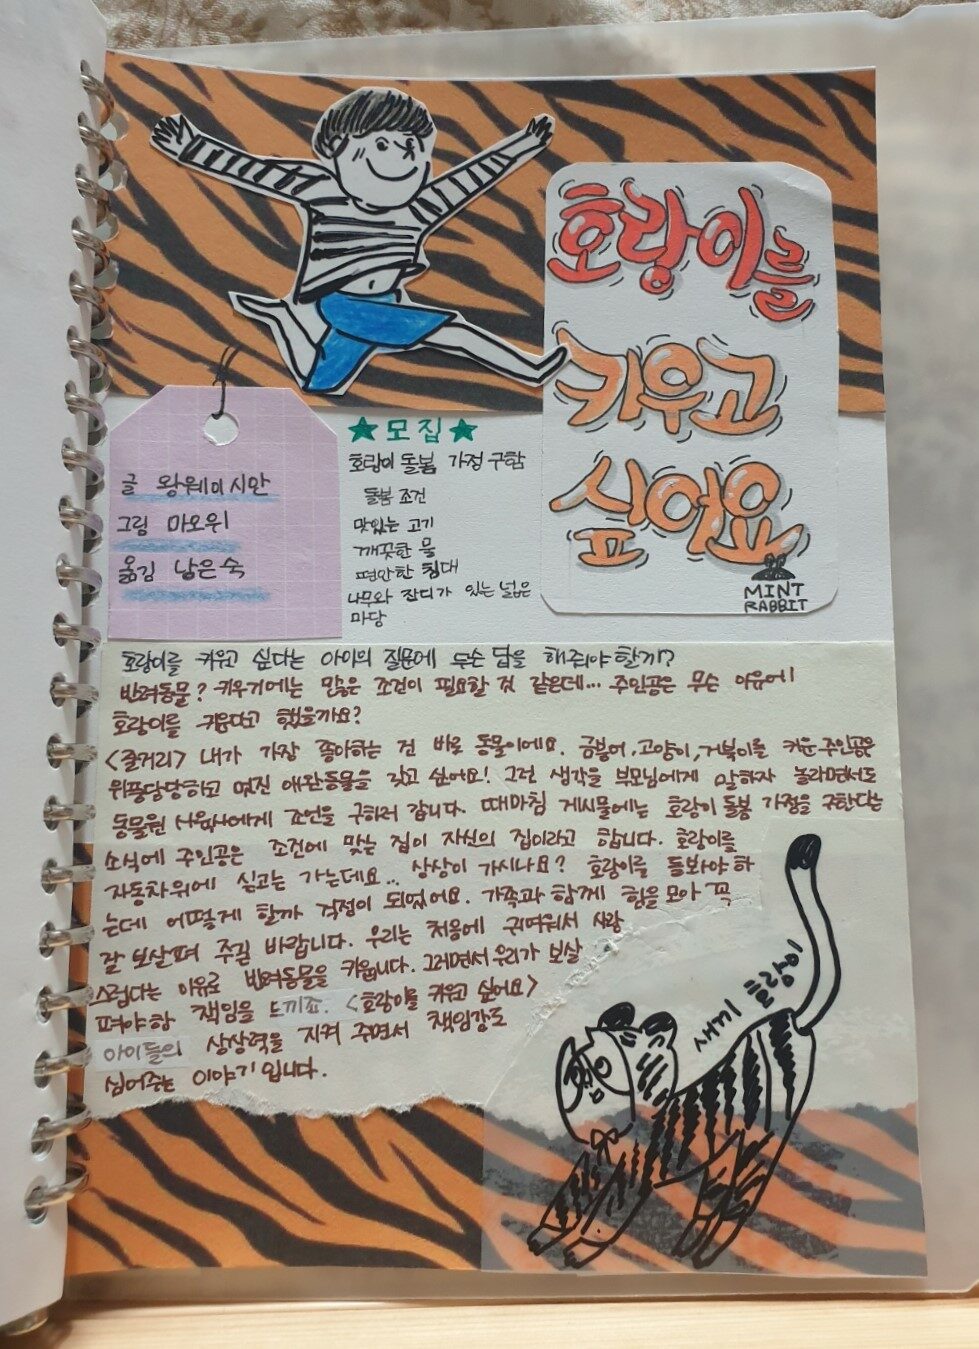 호랑이를
키우고
싶어요
MINT
RABBIT
글 왕웨이시안
그림 마오위
옮김 남은숙
★모집★
호랑이 돌봄 가정 구함
돌봄 조건
맛있는 고기
깨끗한 물
편안한 침대
나무와 잔디가 있는 넓은
마당
호랑이를 키우고 싶다는 아이의 질문에 무슨 답을 해줘야할까?
반려동물? 키우기에는 많은 조건이 필요할 것 같은데... 주인공은 무슨 이유에
호랑이를 키운다고 했을까요?
<줄거리> 내가 가장 좋아하는 건 바로 동물이에요. 금붕어, 고양이, 거북이를 키운 주인공은
위풍당당하고 멋진 애완동물을 갖고 싶어요! 그런 생각을 부모님에게 말하자 놀라면서도
동물원 사육사에게 조언을 구하러 갑니다. 때마침 게시물에는 호랑이 돌봄 가정을 구한다는
소식에 주인공은 조건에 맞는 집이 자신의 집이라고 합니다. 호랑이를
자동차위에 싣고는 가는데요... 상상이 가시나요? 호랑이를 돌봐야 하
는데 어떻게 할까 걱정이 되었어요. 가족과 함께 힘을 모아 꼭
잘 보살펴 주길 바랍니다. 우리는 처음에 귀여워서 사랑
스럽다는 이유로 반려동물을 키웁니다. 그러면서 우리가 보살
펴야함 책임을 느끼죠. <호랑이를 키우고 싶어요>
아이들의 상상력을 지켜 주면서 책임감도
심어주는 이야기입니다.
새끼 호랑이